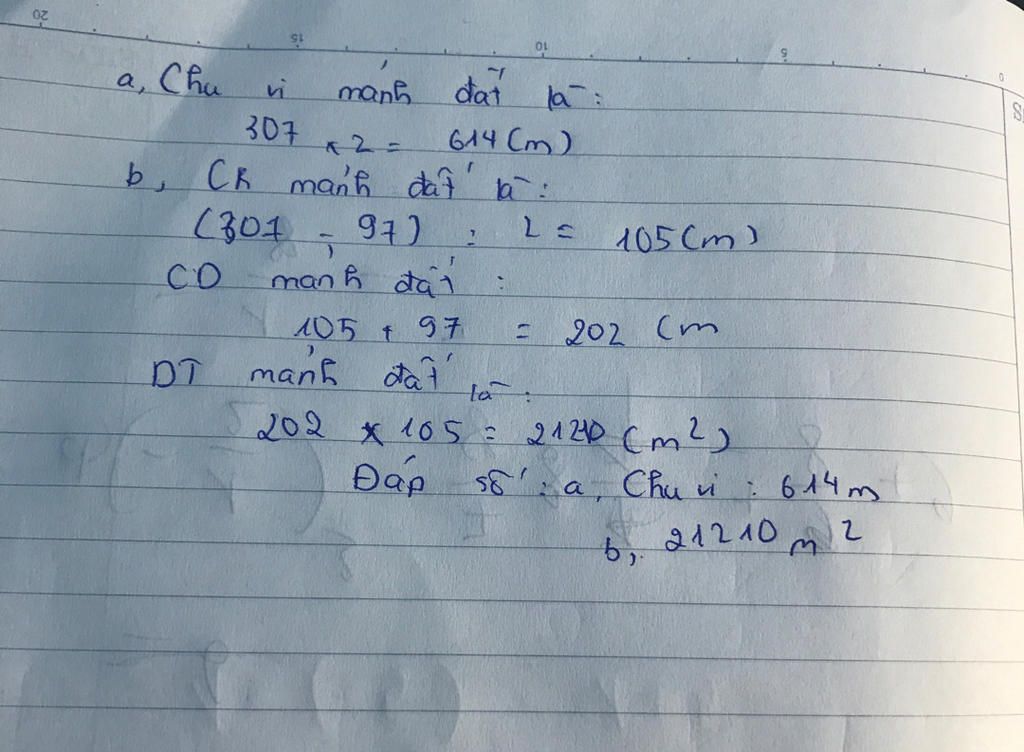 20 15 10 5 0
a, Chu vi mảnh đất là:
307 x 2 = 614 (m)
b, CR mảnh đất là:
(307 - 97) : 2 = 105 (m)
CD mảnh đất :
105 + 97 = 202 (m
DT mảnh đất là:
202 x 105 = 21210 (m²)
Đáp số : a, Chu vi : 614 m
b, 21210 m²